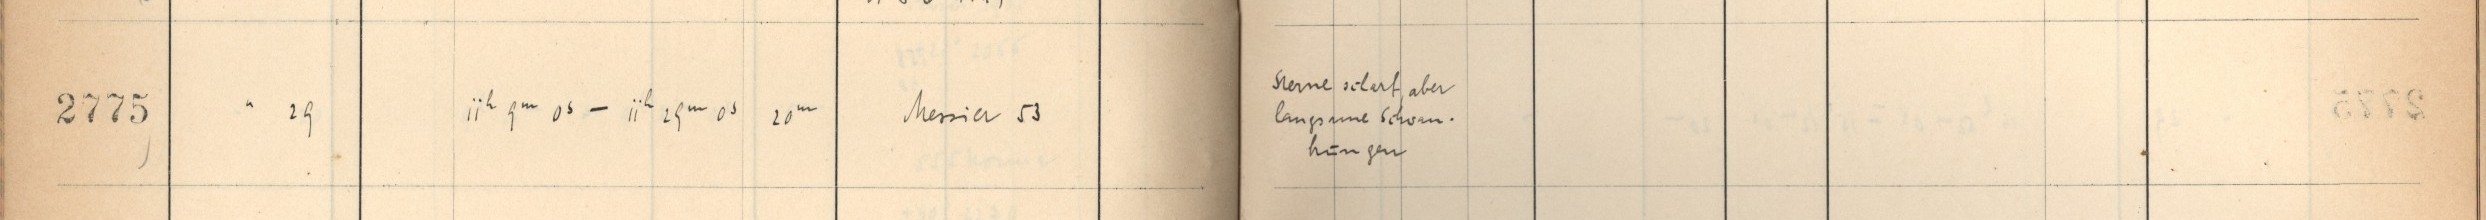 2775 " 29 11h 9m 0s – 11h 29m 0s 20m Messier 53
Sterne scharf, aber
langsame Schwan-
kungen